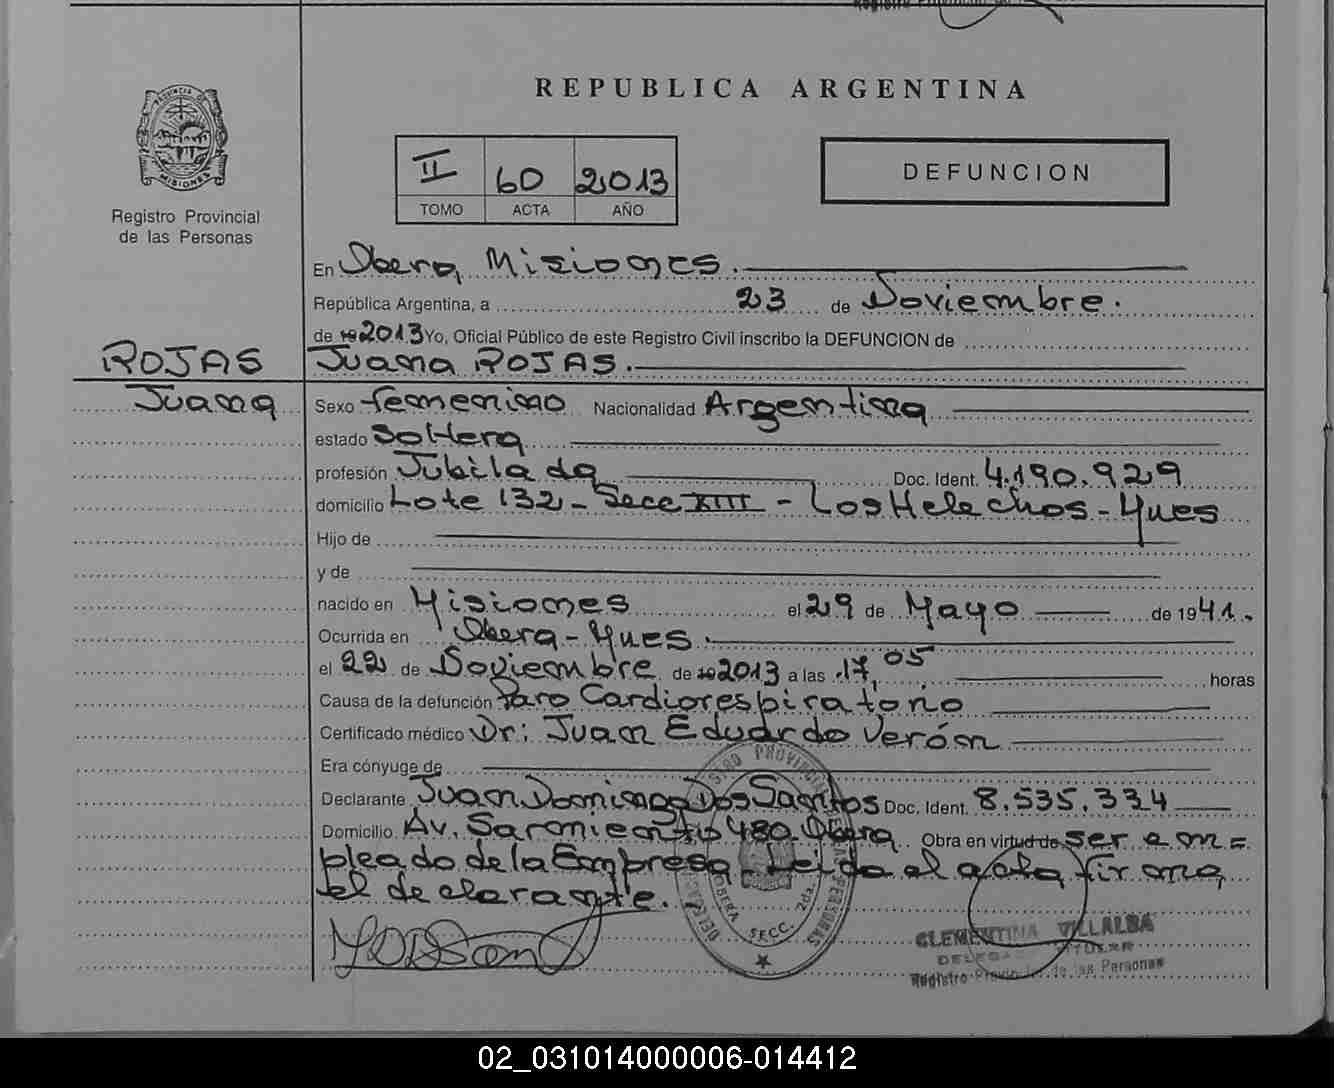 REPUBLICA ARGENTINA
PROVINCIA DE
MISIONES
Registro Provincial
de las Personas
II 60 2013
TOMO ACTA AÑO
DEFUNCION
En Obera, Misiones.
República Argentina, a 23 de Noviembre.
de 19 2013 Yo, Oficial Público de este Registro Civil inscribo la DEFUNCION de
ROJAS Juana ROJAS.
Juana Sexo femenino Nacionalidad Argentina
estado Soltera
profesión Jubilada Doc. Ident. 4.190.929
domicilio Lote 132 - Secc XIII - Los Helechos - Mnes
Hijo de
y de
nacido en Misiones el 29 de Mayo de 1941.
Ocurrida en Obera - Mnes.
el 22 de Noviembre de 19 2013 a las 17, 05 horas
Causa de la defunción Paro Cardiorespiratorio
Certificado médico Dr: Juan Eduardo Verón
Era cónyuge de
Declarante Juan Domingo Dos Santos Doc. Ident. 8.535.334
Domicilio Av. Sarmiento 480. Obera Obra en virtud de ser em=
pleado de la Empresa. Leida el acta, firma
el declarante.
OBERA SECC. 2da.
CLEMENTINA VILLALBA
DELEGADA TITULAR
Registro Provincial de las Personas
02_031014000006-014412